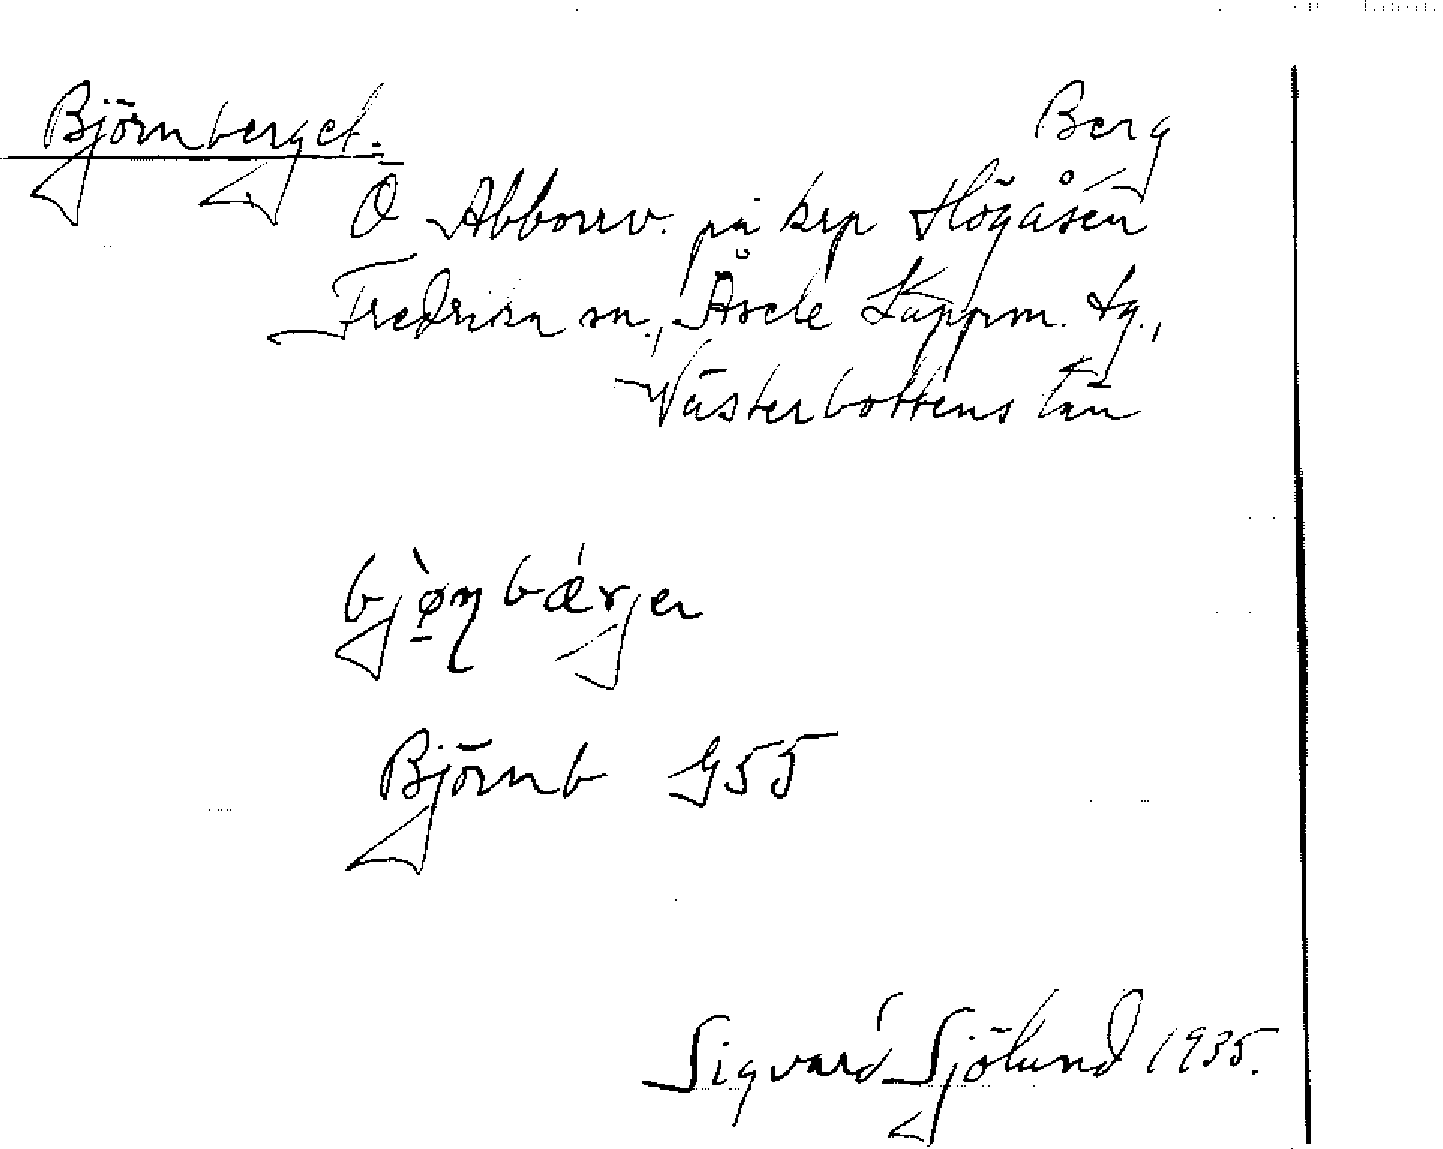 Björnberget. Berg
Ö Abborrv. på krp Högåsen
Fredrika sn., Åsele Lappm. tg.,
Västerbottens län
bjø̀n̠bǽrjen
Björnb G55
Sigvard Sjölund 1935.